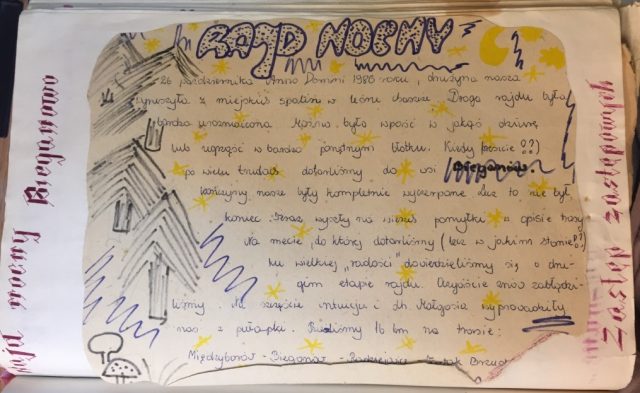 RAJD NOCNY
26 października Anno Domini 1986 roku, drużyna nasza
wyruszyła z miejskich spalin w leśne chaszcze. Droga rajdu była
bardzo urozmaicona. Można było wpaść w jakąś dziurę
lub ugrząść w bardzo porządnym błotku. Kiedy
po wielu trudach dotarliśmy do wsi Bieganów.
kończyny nasze były kompletnie wyczerpane lecz to nie był
koniec. Teraz wyszły na wierzch pomyłki w opisie trasy.
Na mecie, do której dotarliśmy (lecz w jakim stanie!?)
ku wielkiej "radości" dowiedzieliśmy się o dru-
gim etapie rajdu. Oczywiście znów zabłądzi-
liśmy. Na szczęście intuicja i dh. Małgosia wyprowadziły
nas z pułapki. 16 km na trasie:
Międzyborów - Bieganów - Radziejowice -
Rajd nocny Bieganowo
Zastęp zastępowych